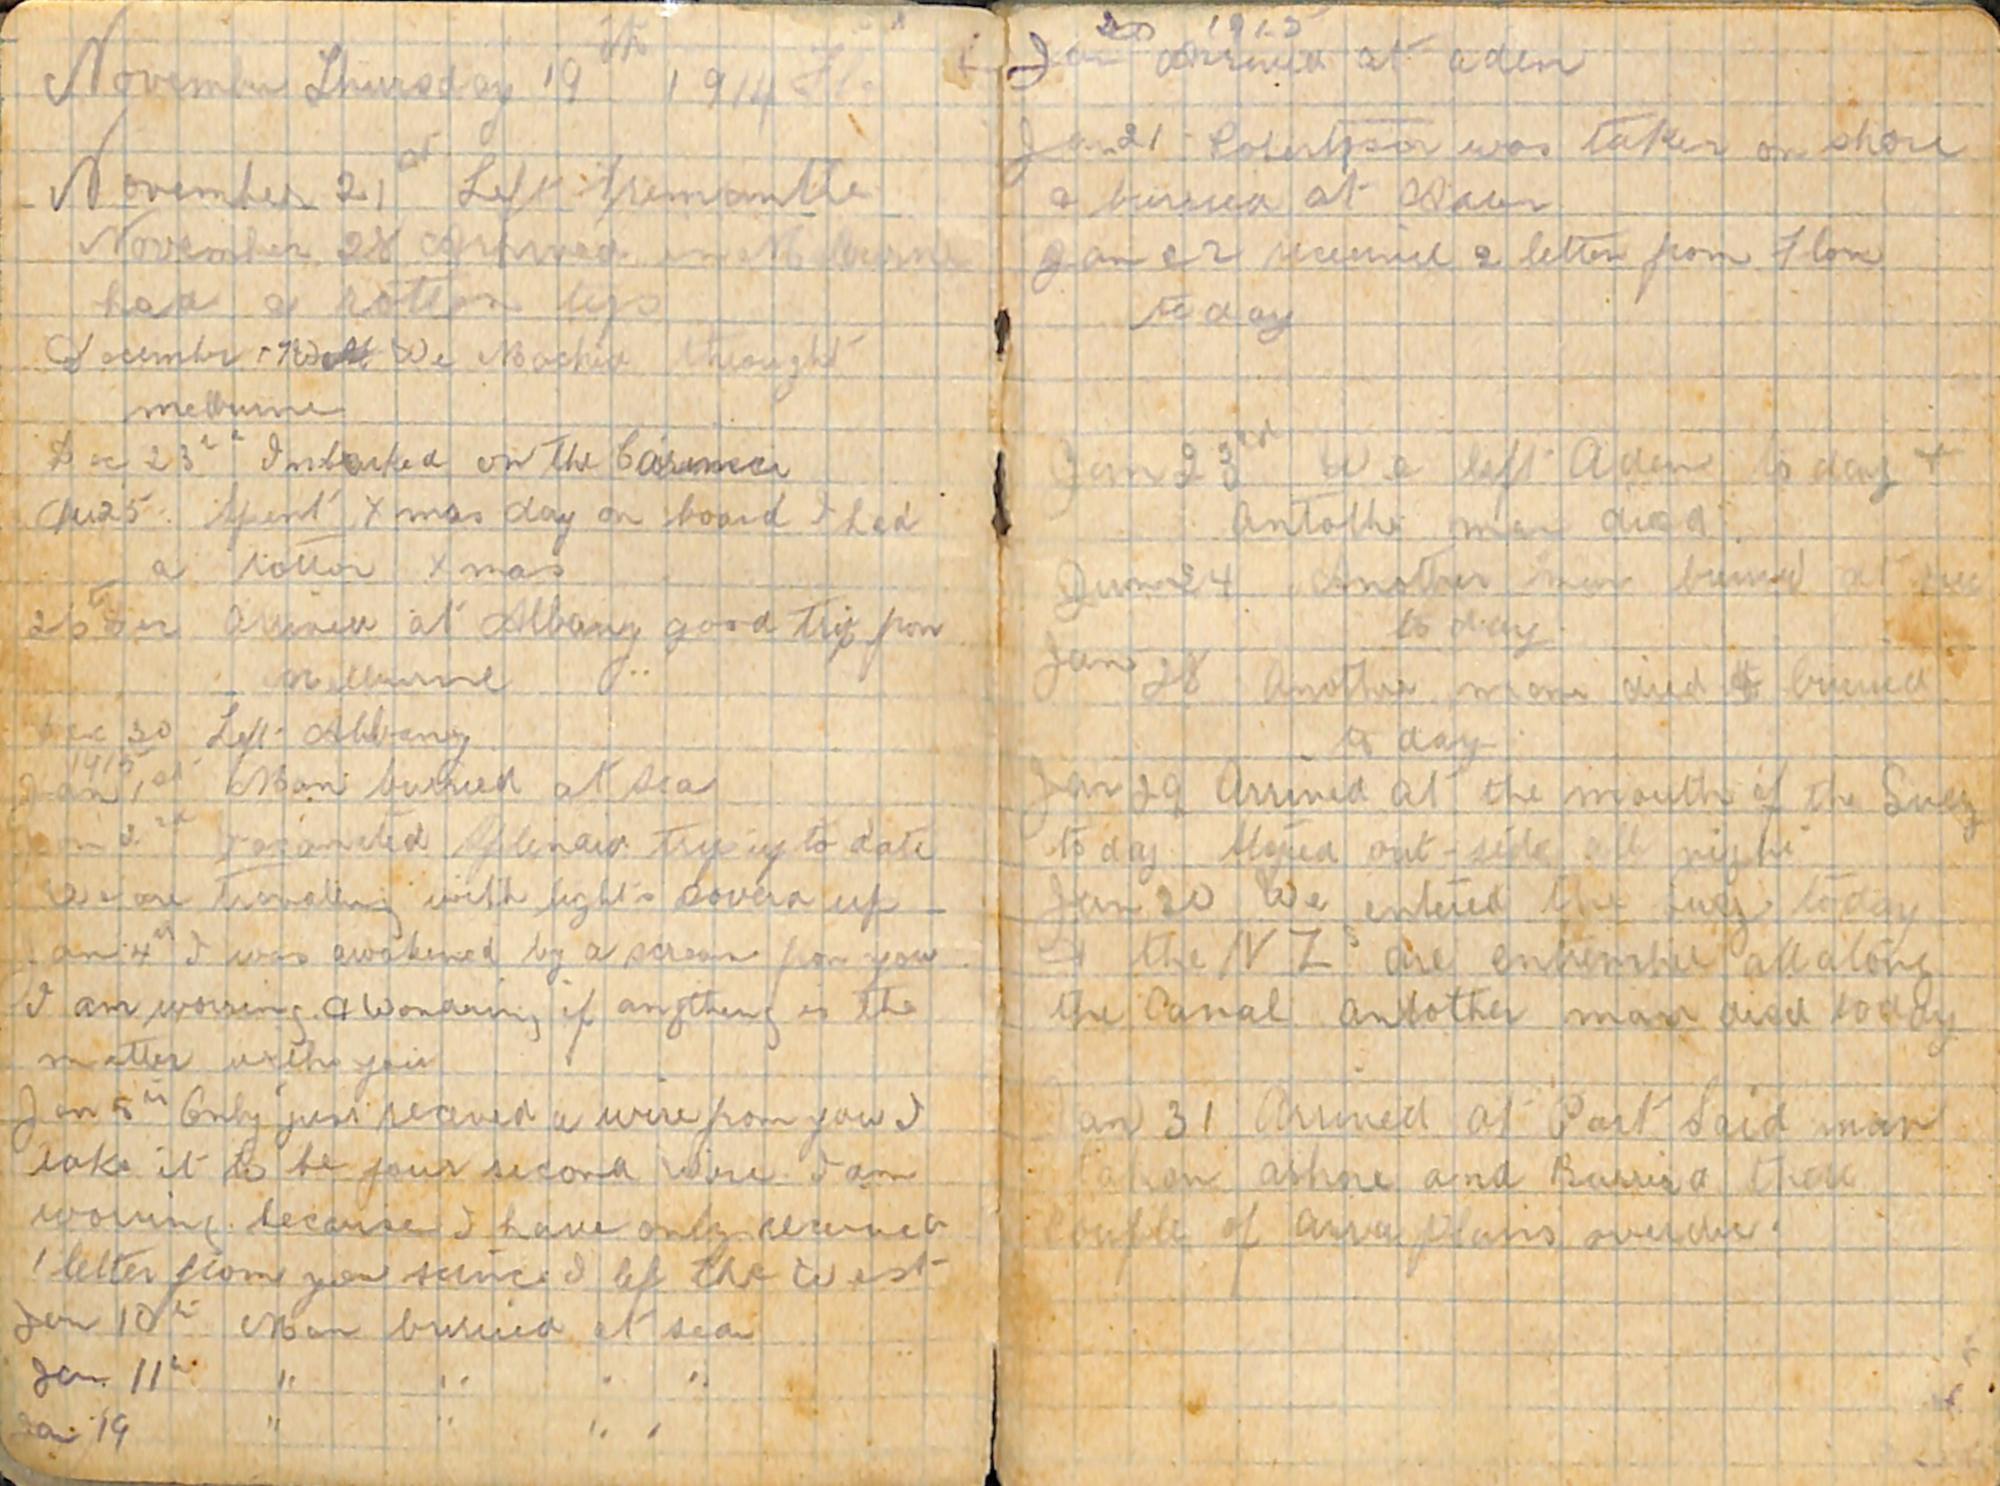 November Thursday 19th 1914
November 21st Left fremantle
November 28 Arrived in Melburne
had a rotten
December We Marched throught
melburne
Dec 23rd Imbarked on the
Dec 25 Spent Xmas day on board I had
a rotton Xmas
26th Dec Arrived at Albany good trip from
Melburne
Dec 30 Left Albany
1915
Jan 1st Man burried at sea
Jan 2nd Splendid trip up to date
We are travelling with lights coverd up
Jan 4th I was awakened by a scream from you
I am worring & wondering if anything is the
matter with you
Jan 5th Only just receved a wire from you I
take it to be your second wire I am
worring because I have only receved
1 letter from you since I left the West
Jan 10th Man burried at sea
Jan 11th " " " "
Jan 19 " " " "
20 1915
Jan Arrived at aden
Jan 21 Robertson was taken on shore
& burried at Aden
Jan 22 received 2 letters from Flow
today
Jan 23rd We left Aden to day &
Antother man died
24 Another man buried at sea
to day
Jan 28 Another man died & burried
to day
Jan 29 Arrived at the mouth of the Suez
to day Stayed out-side all night
Jan 30 We entered the Suez today
& the N Zs are all along
the Canal Antother man died today
Jan 31 Arrived at Port Said man
taken ashore and Burried there
Couple of plans